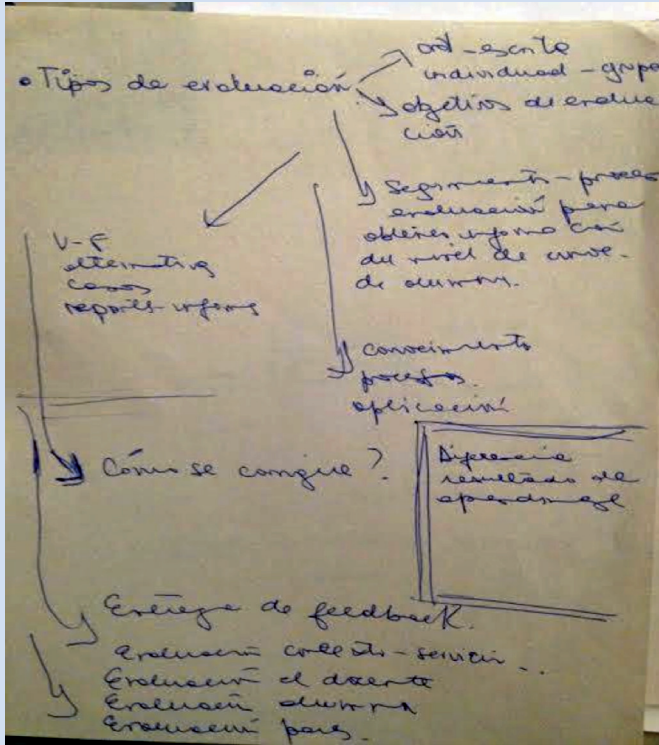 • Tipos de evaluación
oral - escrita
individual - grupo
objetivos de evalua
ción
Seguimiento - proceso
evaluación para
obtener información
del nivel de conoc.
de alumnos.
V-F
alternativa
casos
reportes-informes
conocimiento
procesos.
aplicación
Cómo se corrige?
Diferencia
resultado de
aprendizaje
Entrega de feedback.
Evaluación - servicio..
Evaluación al docente
Evaluación alumno
Evaluación pares.